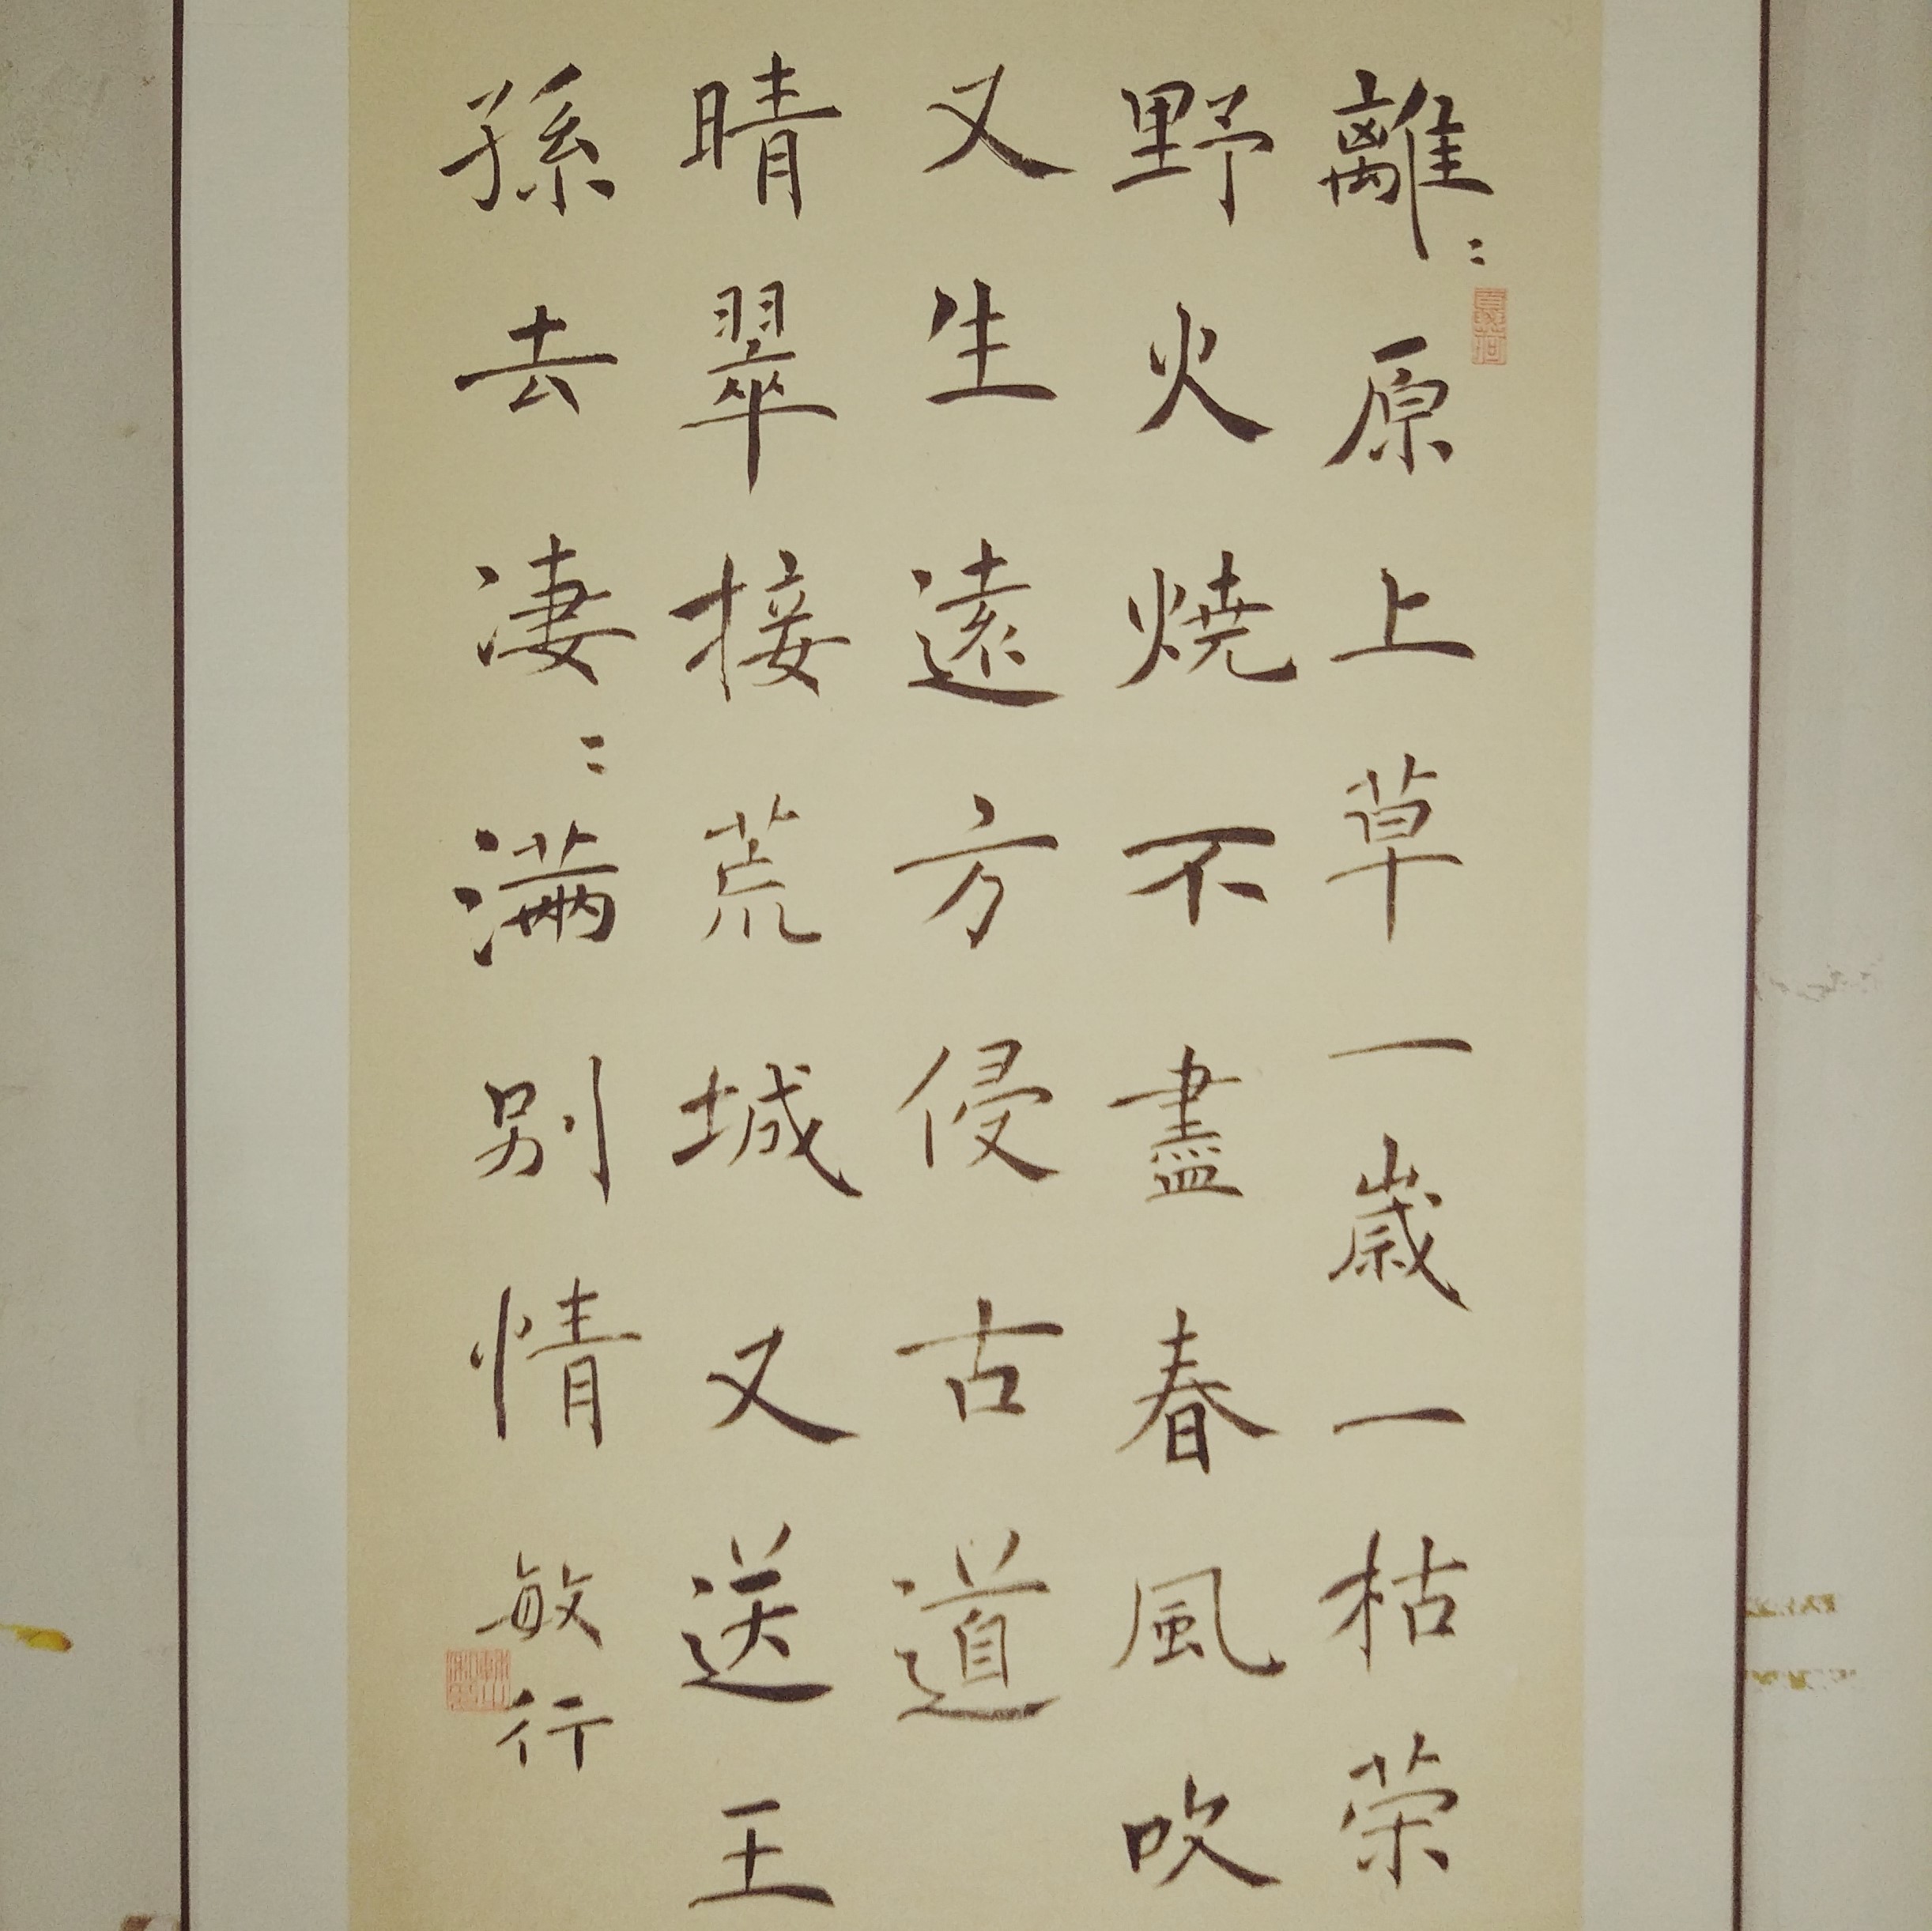 離〻原上草一歲一枯荣
野火燒不盡春風吹
又生遠方侵古道
晴翠接荒城又送王
孫去凄〻满别情
敏行